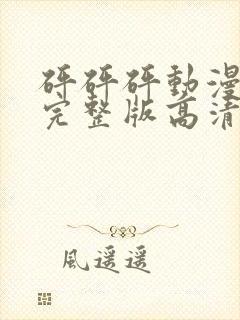 砰砰砰動漫
完整版高清
風遥遥